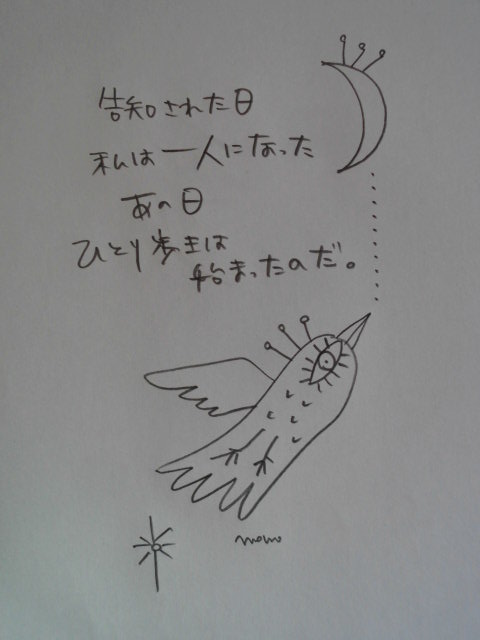 告知された日
私は一人になった
あの日
ひとり歩きは
始まったのだ。
momo